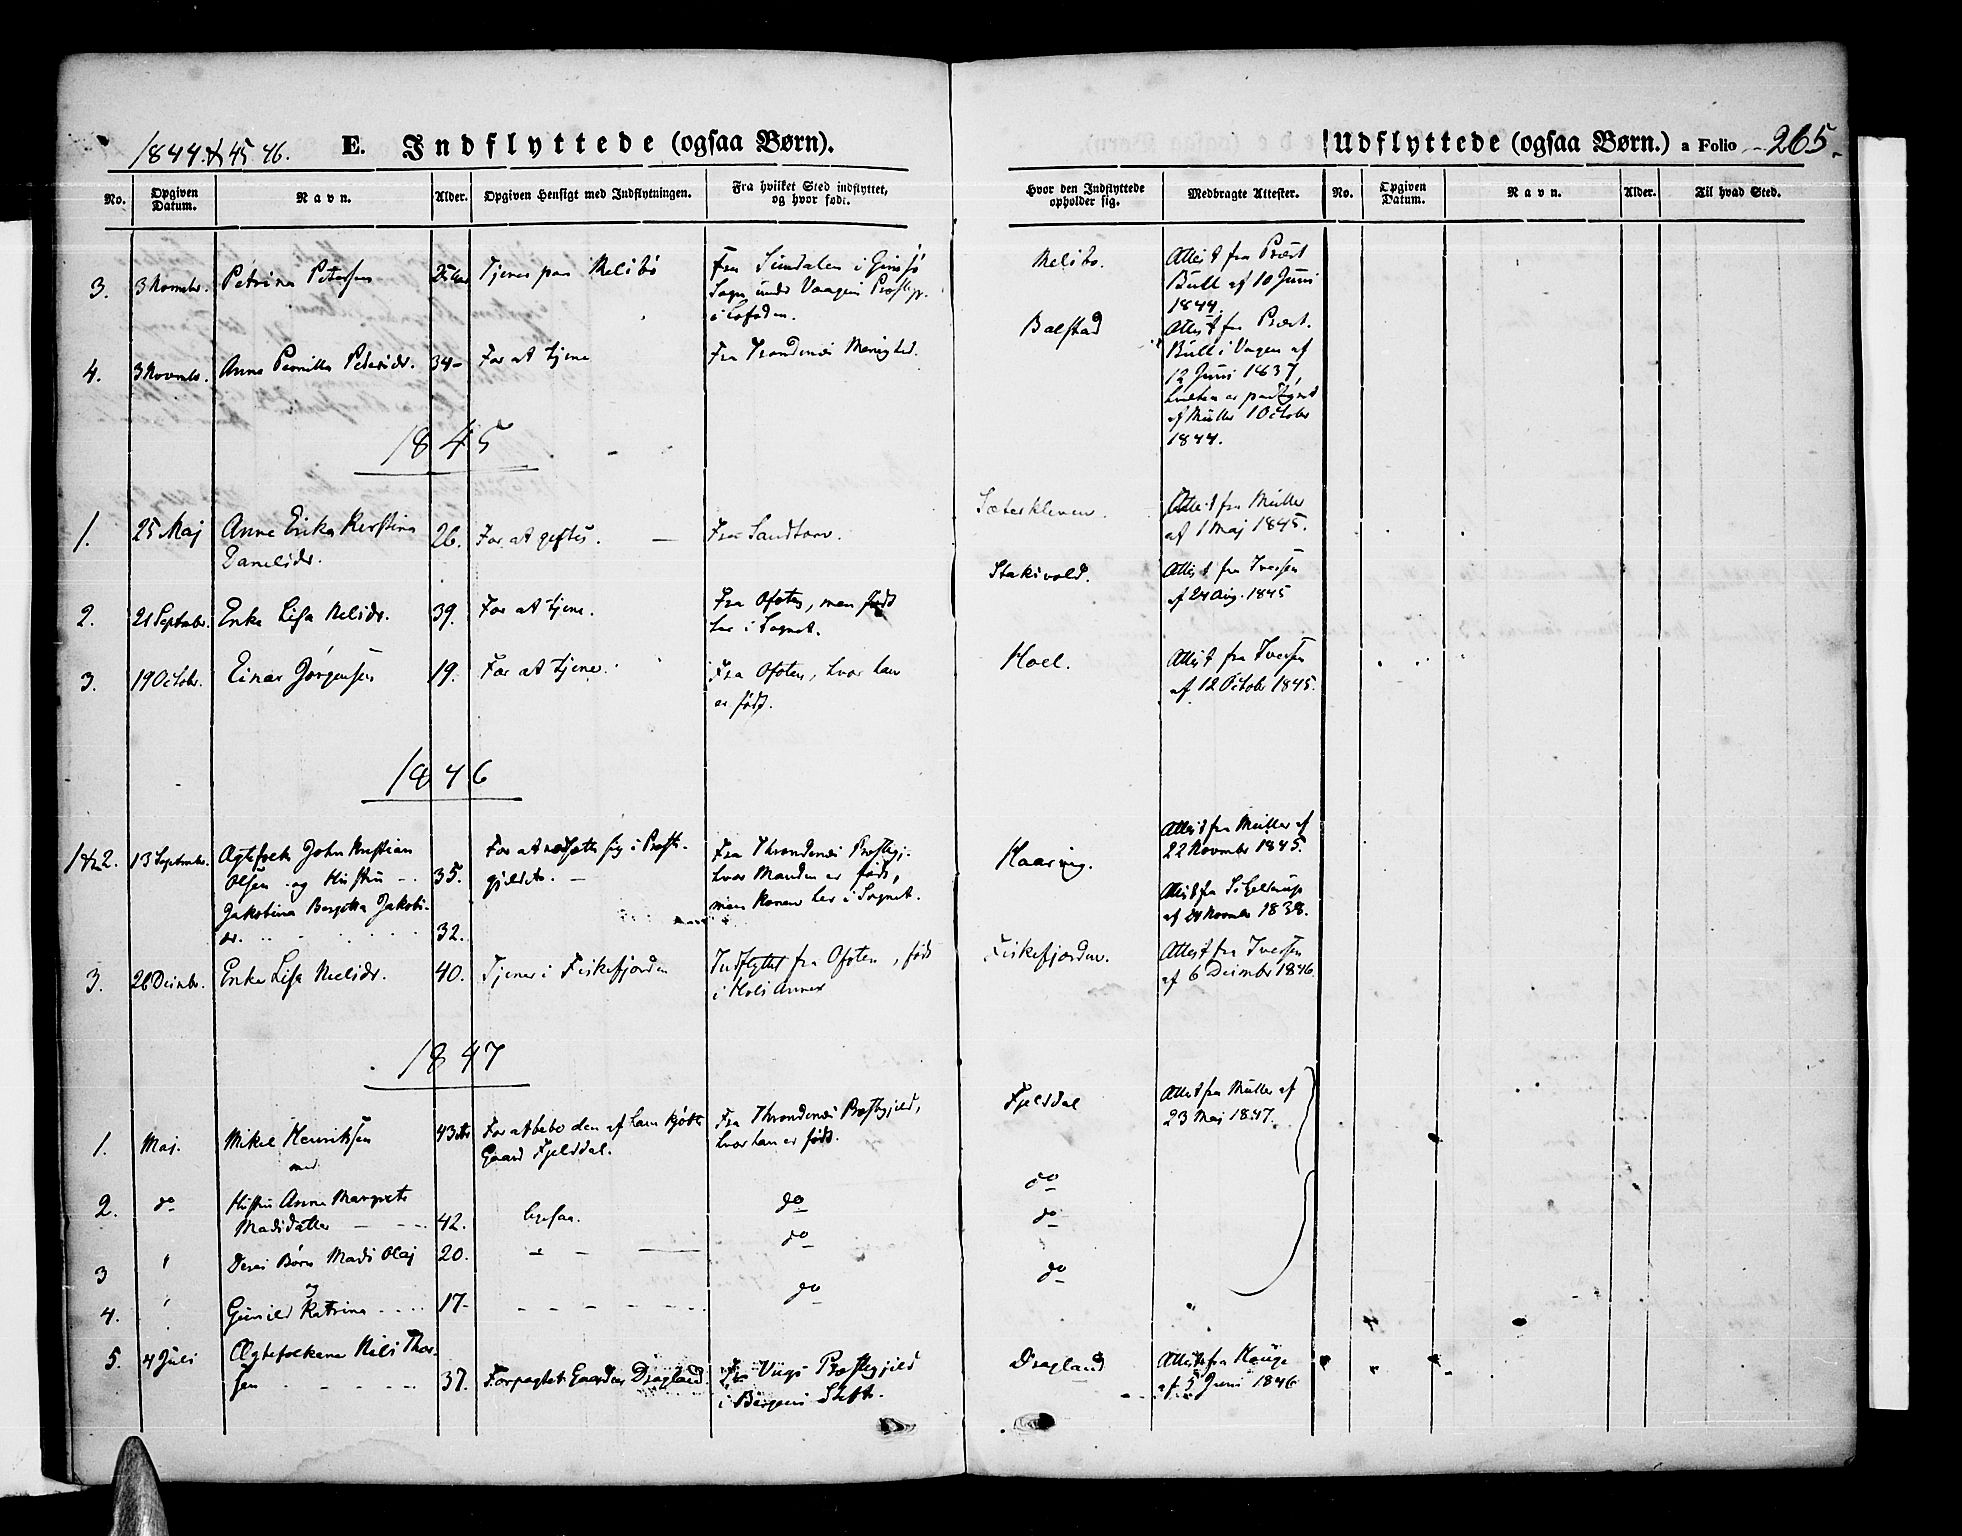 1844. & 45 46. E. Indflyttede (ogsaa Børn).
Udflyttede (ogsaa Børn.) a Folio 265.
No. Opgiven Datum. Navn. Alder. Opgiven Hensigt med Indflytningen. Fra hvilket Sted indflyttet, og hvor født.
Hvor den Indflyttede opholder sig. Medbragte Attester. No. Opgiven Datum. Navn. Alder. Til hvad Sted.
3. 3 Novembr. Petrina Petersen 25 Aar Tjener paa Melibø Fra Sundalen i Gimsø
Sogn under Vaagens Præstgj.
i Lofoden.
Melibo. Attest fra Præst
Bull af 10 Juni
1844.
4. 3 Novembr. Anne Pernilla Pedersdr. 34 - For at tjene Fra Trondenæs Menighed.
Balstad Attest fra Præst.
Bull i Vagen af
12 Juni 1837,
hvilken er paategnet
af Müller 1 October
1844.
1845
1. 25 Maj Anne Erika Kerstina 26. For at giftes. Fra Sandtorv.
Danielsdr.
Sæterkleven. Attest fra Müller
af 1 Maj 1845.
2. 21 Septembr. Enke Lisa Nelsdr. 39. For at tjene. Fra Ofoten, men født
her i Sognet.
Staksvold. Attest fra Iversen
af 24 Aug. 1845
3. 19 Octobr. Einar Jørgensen 19. For at tjene. Fra Ofoten, hvor han
er født.
Hoel. Attest fra Iversen
af 12 October 1845.
1846
1 & 2. 13 Septembr. Ægtefolk John Kristian
Olsen og Hustru 35.
Jakobina Bergitta Jakobs-
dr. 32.
For at nedsætte sig i Præste-
gjeldet.
Fra Throndenæs Præstegj.
hvor Manden er født,
men Konen her i Sognet.
Kaaring. Attest fra Müller af
22 November 1845.
Attest fra S. Gjelstrup
af 24 November 1838.
3. 26 Decembr. Enke Lisa Nielsdr. 40. Tjener i Fiskefjorden Indflyttet fra Ofoten, født
i Hols Annex
Fiskefjorden. Attest fra Iversen
af 6 December 1846.
1847
1. Maj. Mikel Henriksen 43 Aar For at beboe den af ham kjøbte
med Gaard Fjeldal.
Fra Throndenæs Præstegjeld,
hvor han er født.
Fjeldal Attest fra Müller af
23 Mai 1847.
2. do Hustru Anne Margrete
Madsdatter 42. ligesaa. do do
3 " Deres Børn Mads Olaj 20. do do
og
4. " Gunild Katrina 17 - do do
5. 4 Juli Ægtefolkene Nils Thor-
sen 37. Forpagtet Gaarden Dragland.
Fra Viigs Præstegjeld
i Bergens Stift.
Dragland Attest fra Hauge
af 5 Juni 1846